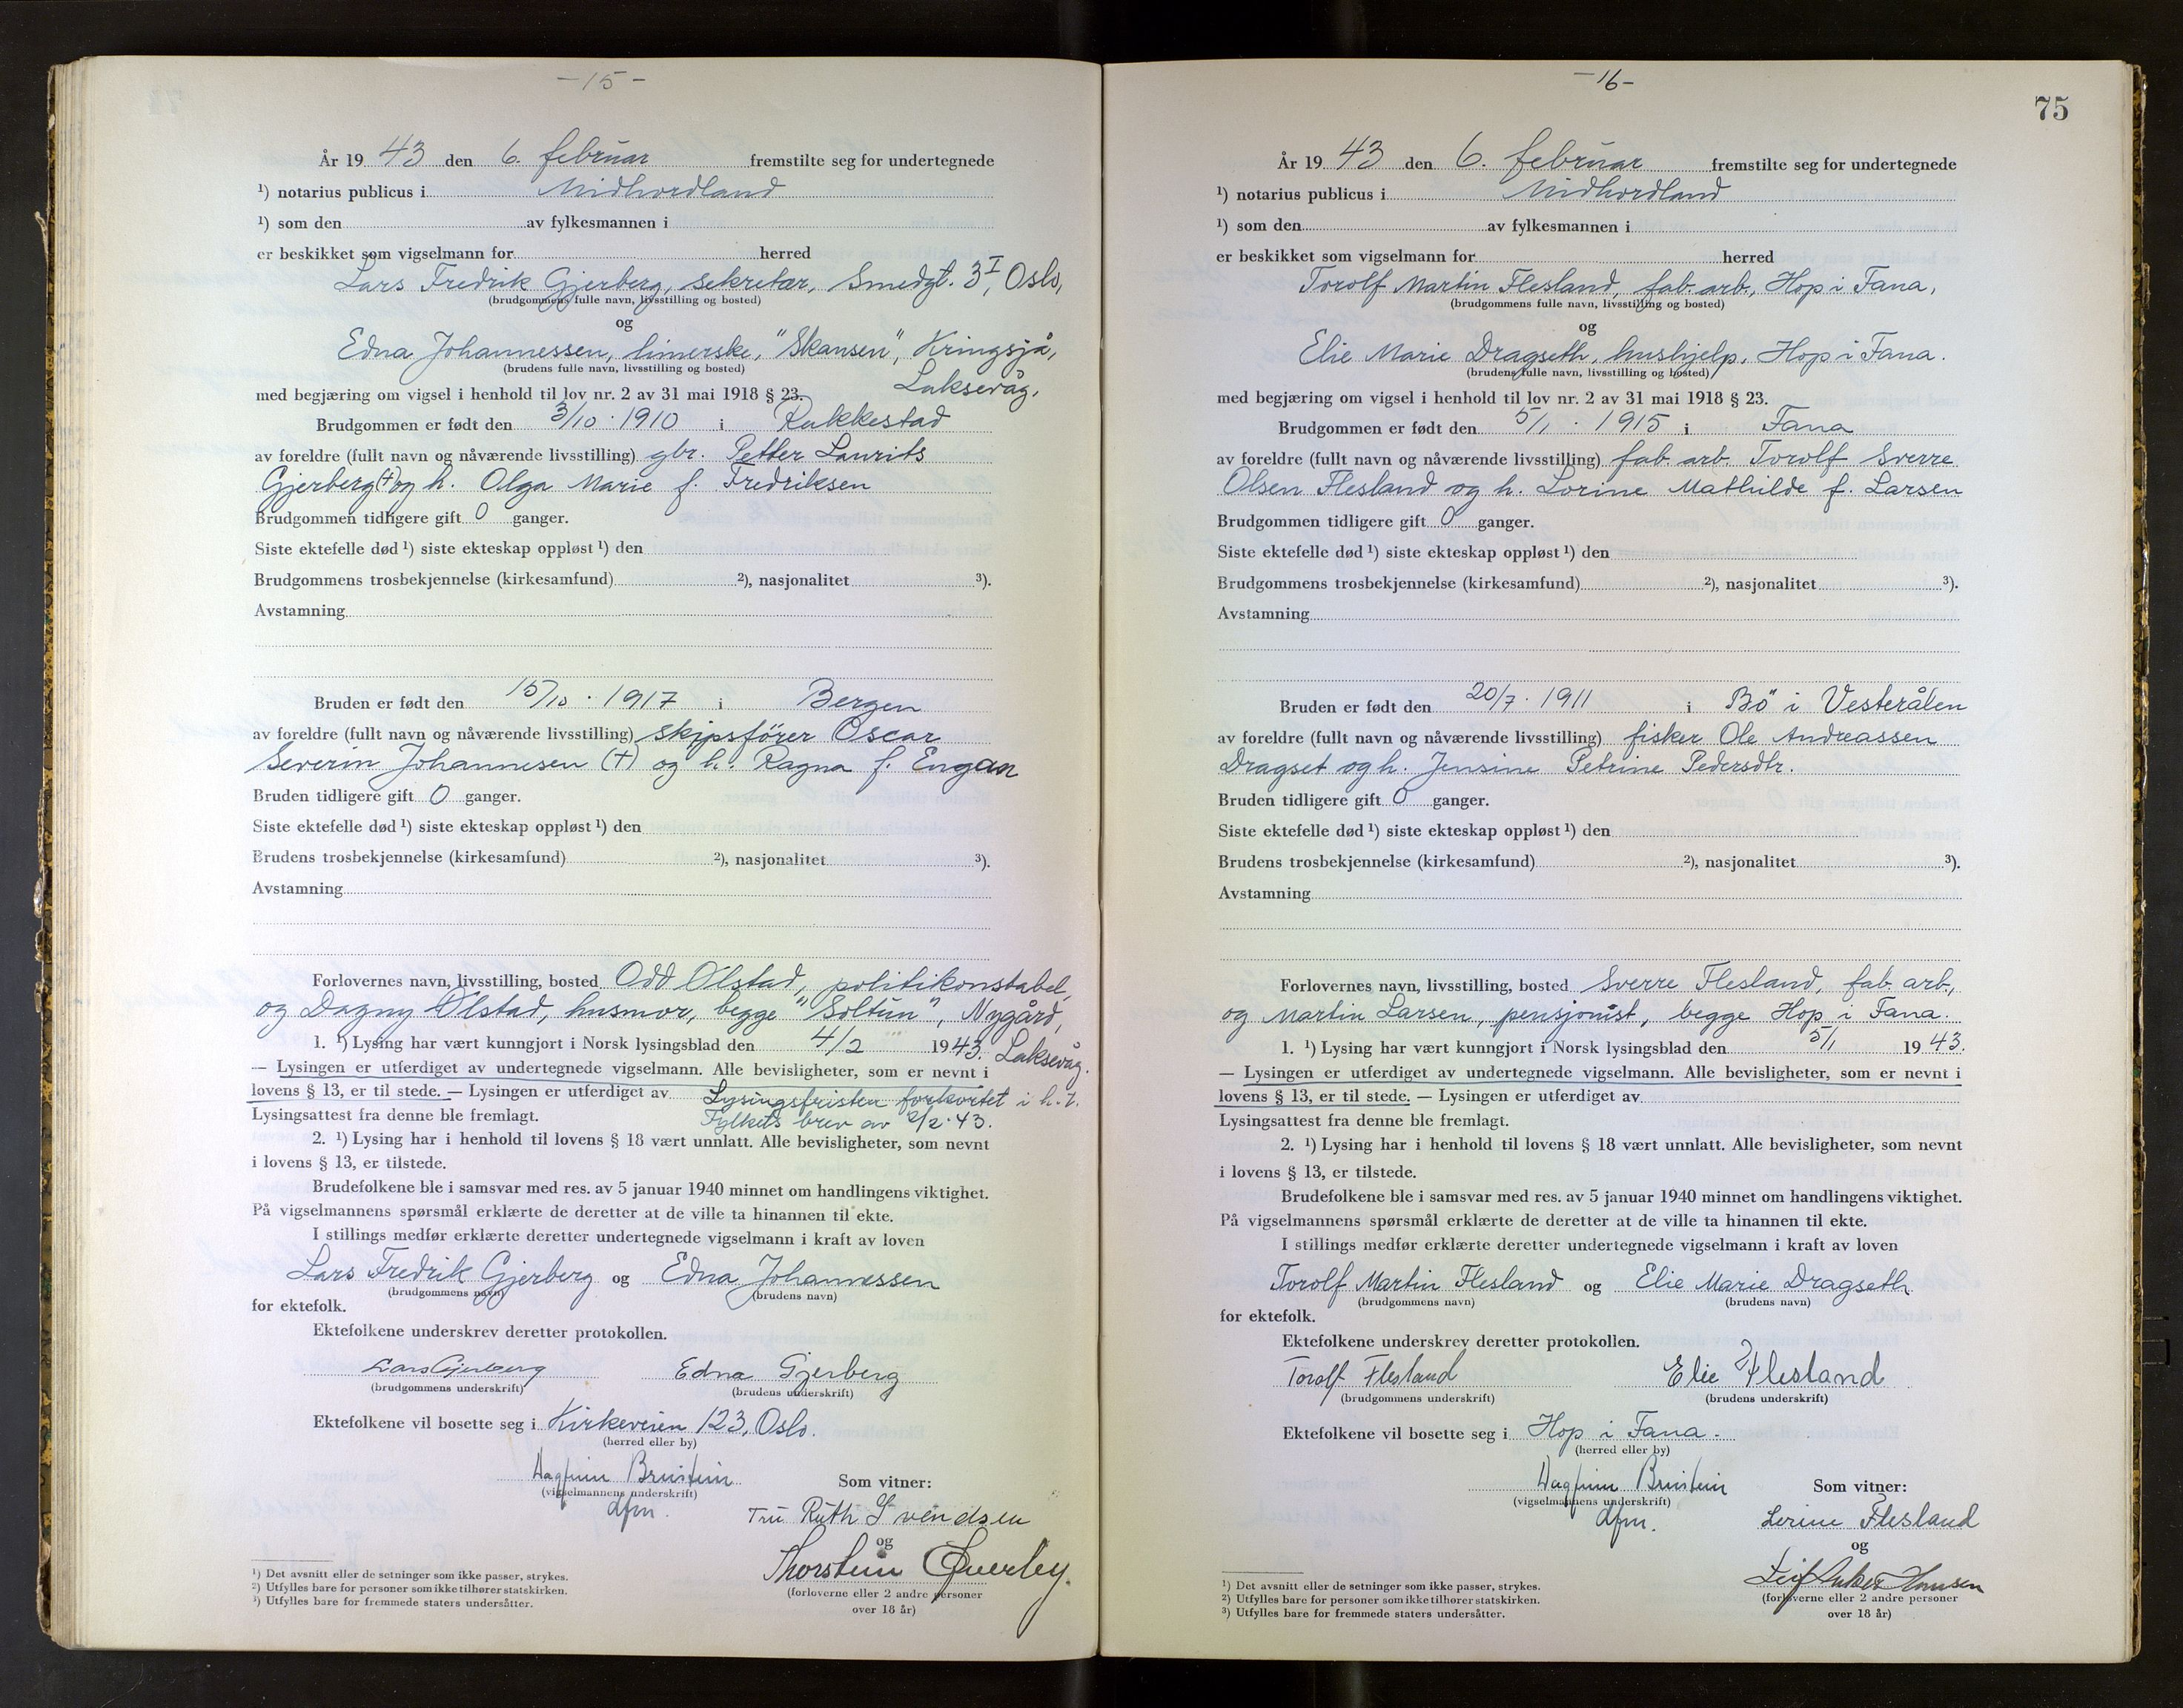 -15-
År 19 43 den 6. februar fremstilte seg for undertegnede
¹) notarius publicus i Midhordland
¹) som den av fylkesmannen i
er beskikket som vigselmann for herred
Lars Fredrik Gjerberg, sekretær, Smedgt. 3 I, Oslo,
(brudgommens fulle navn, livsstilling og bosted)
og
Edna Johannessen, limerske, "Skansen", Kringsjå,
(brudens fulle navn, livsstilling og bosted)
Laksevåg,
med begjæring om vigsel i henhold til lov nr. 2 av 31 mai 1918 § 23.
Brudgommen er født den 3/10 · 1910 i Rakkestad
av foreldre (fullt navn og nåværende livsstilling) gbr. Petter Laurits
Gjerberg (+) og h. Olga Marie f. Fredriksen
Brudgommen tidligere gift 0 ganger.
Siste ektefelle død ¹) siste ekteskap oppløst ¹) den
Brudgommens trosbekjennelse (kirkesamfund) ²), nasjonalitet ³).
Avstamning
Bruden er født den 15/10 · 1917 i Bergen
av foreldre (fullt navn og nåværende livsstilling) skipsfører Oscar
Severin Johannesen (+) og h. Ragna f. Engan
Bruden tidligere gift 0 ganger.
Siste ektefelle død ¹) siste ekteskap oppløst ¹) den
Brudens trosbekjennelse (kirkesamfund) ²), nasjonalitet ³).
Avstamning
Forlovernes navn, livsstilling, bosted Odd Ølstad, politikonstabel,
og Dagny Ølstad, husmor, begge "Soltun", Nygård,
1. ¹) Lysing har vært kunngjort i Norsk lysingsblad den 4/2 1943. Laksevåg.
— Lysingen er utferdiget av undertegnede vigselmann. Alle bevisligheter, som er nevnt i
lovens § 13, er til stede. — Lysingen er utferdiget av Lysingsfristen forkortet i h. t.
Lysingsattest fra denne ble fremlagt. Fylkets brev av 2/2.43.
2. ¹) Lysing har i henhold til lovens § 18 vært unnlatt. Alle bevisligheter, som nevnt
i lovens § 13, er tilstede.
Brudefolkene ble i samsvar med res. av 5 januar 1940 minnet om handlingens viktighet.
På vigselmannens spørsmål erklærte de deretter at de ville ta hinannen til ekte.
I stillings medfør erklærte deretter undertegnede vigselmann i kraft av loven
Lars Fredrik Gjerberg og Edna Johannessen
(brudgommens navn) (brudens navn)
for ektefolk.
Ektefolkene underskrev deretter protokollen.
Lars Gjerberg Edna Gjerberg
(brudgommens underskrift) (brudens underskrift)
Ektefolkene vil bosette seg i Kirkeveien 123, Oslo.
(herred eller by)
Dagfinn Brustein
(vigselmannens underskrift) Som vitner:
dfm.
Ruth Svendsen
og
Thorstein Querley.
(forloverne eller 2 andre personer
over 18 år)
¹) Det avsnitt eller de setninger som ikke passer, strykes.
²) Utfylles bare for personer som ikke tilhører statskirken.
³) Utfylles bare for fremmede staters undersåtter.
-16-
75
År 19 43 den 6. februar fremstilte seg for undertegnede
¹) notarius publicus i Midhordland
¹) som den av fylkesmannen i
er beskikket som vigselmann for herred
Torolf Martin Flesland, fab. arb., Hop i Fana,
(brudgommens fulle navn, livsstilling og bosted)
og
Elie Marie Dragseth, hushjelp, Hop i Fana.
(brudens fulle navn, livsstilling og bosted)
med begjæring om vigsel i henhold til lov nr. 2 av 31 mai 1918 § 23.
Brudgommen er født den 5/1 · 1915 i Fana
av foreldre (fullt navn og nåværende livsstilling) fab. arb. Torolf Sverre
Olsen Flesland og h. Lorine Mathilde f. Larsen
Brudgommen tidligere gift 0 ganger.
Siste ektefelle død ¹) siste ekteskap oppløst ¹) den
Brudgommens trosbekjennelse (kirkesamfund) ²), nasjonalitet ³).
Avstamning
Bruden er født den 20/7 · 1911 i Bö i Vesterålen
av foreldre (fullt navn og nåværende livsstilling) fisker Ole Andreassen
Dragset og h. Jensine Petrine Pedersdtr.
Bruden tidligere gift 0 ganger.
Siste ektefelle død ¹) siste ekteskap oppløst ¹) den
Brudens trosbekjennelse (kirkesamfund) ²), nasjonalitet ³).
Avstamning
Forlovernes navn, livsstilling, bosted Sverre Flesland, fab. arb.,
og Martin Larsen, pensjonist, begge Hop i Fana.
1. ¹) Lysing har vært kunngjort i Norsk lysingsblad den 5/1 1943.
— Lysingen er utferdiget av undertegnede vigselmann. Alle bevisligheter, som er nevnt i
lovens § 13, er til stede. — Lysingen er utferdiget av
Lysingsattest fra denne ble fremlagt.
2. ¹) Lysing har i henhold til lovens § 18 vært unnlatt. Alle bevisligheter, som nevnt
i lovens § 13, er tilstede.
Brudefolkene ble i samsvar med res. av 5 januar 1940 minnet om handlingens viktighet.
På vigselmannens spørsmål erklærte de deretter at de ville ta hinannen til ekte.
I stillings medfør erklærte deretter undertegnede vigselmann i kraft av loven
Torolf Martin Flesland og Elie Marie Dragseth
(brudgommens navn) (brudens navn)
for ektefolk.
Ektefolkene underskrev deretter protokollen.
Torolf Flesland Elie Flesland
(brudgommens underskrift) (brudens underskrift)
Ektefolkene vil bosette seg i Hop i Fana.
(herred eller by)
Dagfinn Brustein
(vigselmannens underskrift) Som vitner:
dfm.
Lorine Flesland
og
Leif Anker Hansen
(forloverne eller 2 andre personer
over 18 år)
¹) Det avsnitt eller de setninger som ikke passer, strykes.
²) Utfylles bare for personer som ikke tilhører statskirken.
³) Utfylles bare for fremmede staters undersåtter.